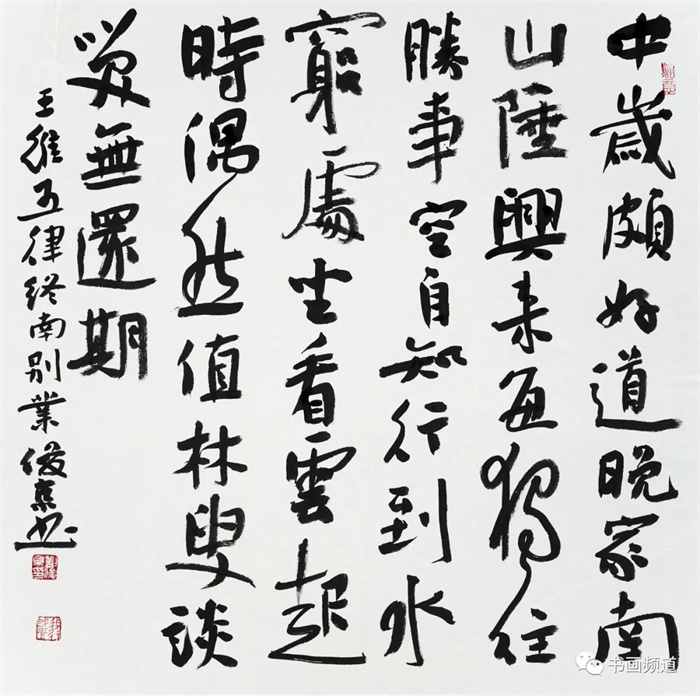 中歲頗好道晚家南
山陲興来每獨往
勝事空自知行到水
窮處坐看雲起
時偶然值林叟談
笑無還期
王維五律終南别業俊书
书画频道